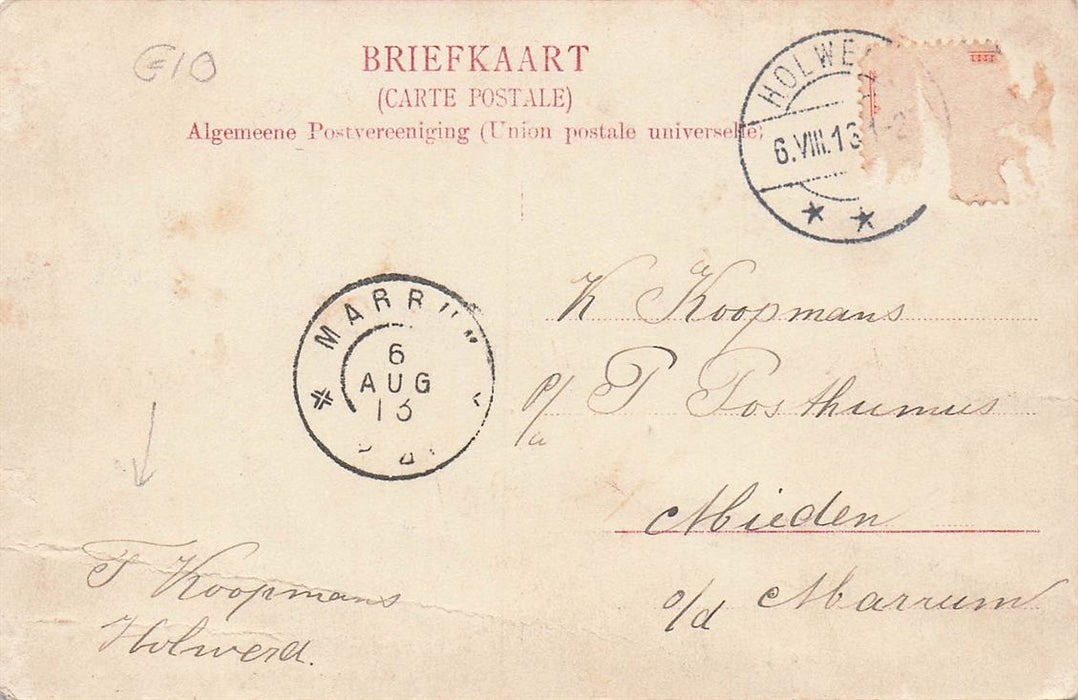 €10
BRIEFKAART
(CARTE POSTALE)
Algemeene Postvereeniging (Union postale universelle)
HOLWE
6.VIII.13 1-2
MARRUM
6
AUG
13
K Koopmans
P/a P Posthumus
Mieden
o/d Marrum
F Koopmans
Holwerd.